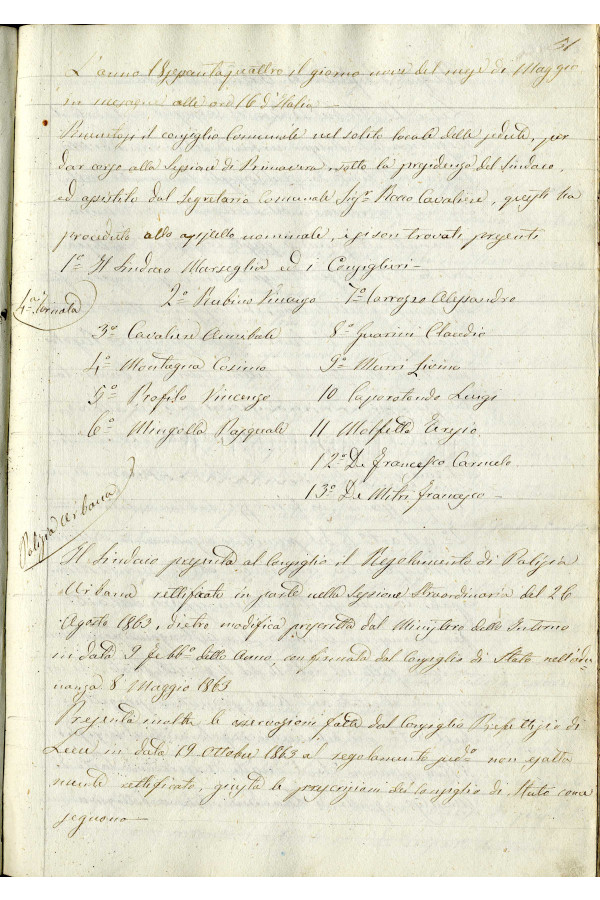 51
L'anno 18sessantaquattro il giorno nove del mese di Maggio
in Mesagne alle ore 16 d'Italia —
Riunitosi il Consiglio Comunale nel solito locale delle sedute, per
dar corso alla Sessione di Primavera sotto la presidenza del Sindaco,
ed assistito dal Segretario Comunale Sigr Rocco Cavaliere, questi ha
proceduto allo appello nominale, e si son trovati presenti
1º Il Sindaco Marseglia ed i Consiglieri —
4ª Tornata
2º Rubino Vincenzo 7º Carrozzo Alessandro
3º Cavaliere Annibale 8º Guarini Claudio
4º Montagna Cosimo 9º Murri Livino
5º Profilo Vincenzo 10 Caporotondo Luigi
6º Mingolla Pasquale 11 Molfetta
12º De Francesco Carmelo
13º De Mitri Francesco —
Polizia Urbana
Il Sindaco presenta al Consiglio il Regolamento di Polizia
Urbana rettificato in parte nella Sessione Straordinaria del 26
Agosto 1863, dietro modifica prescritta dal Ministero dello Interno
in data 9 Febb.º dello Anno, confirmata dal Consiglio di Stato nell'adu-
nanza 8 Maggio 1863
Presenta inoltre le osservazioni fatte dal Consiglio Prefettizio di
Lecce in data 19 Ottobre 1863 al regolamento predº non esatta
mente rettificato, giusta le prescrizioni del Consiglio di Stato come
seguono —